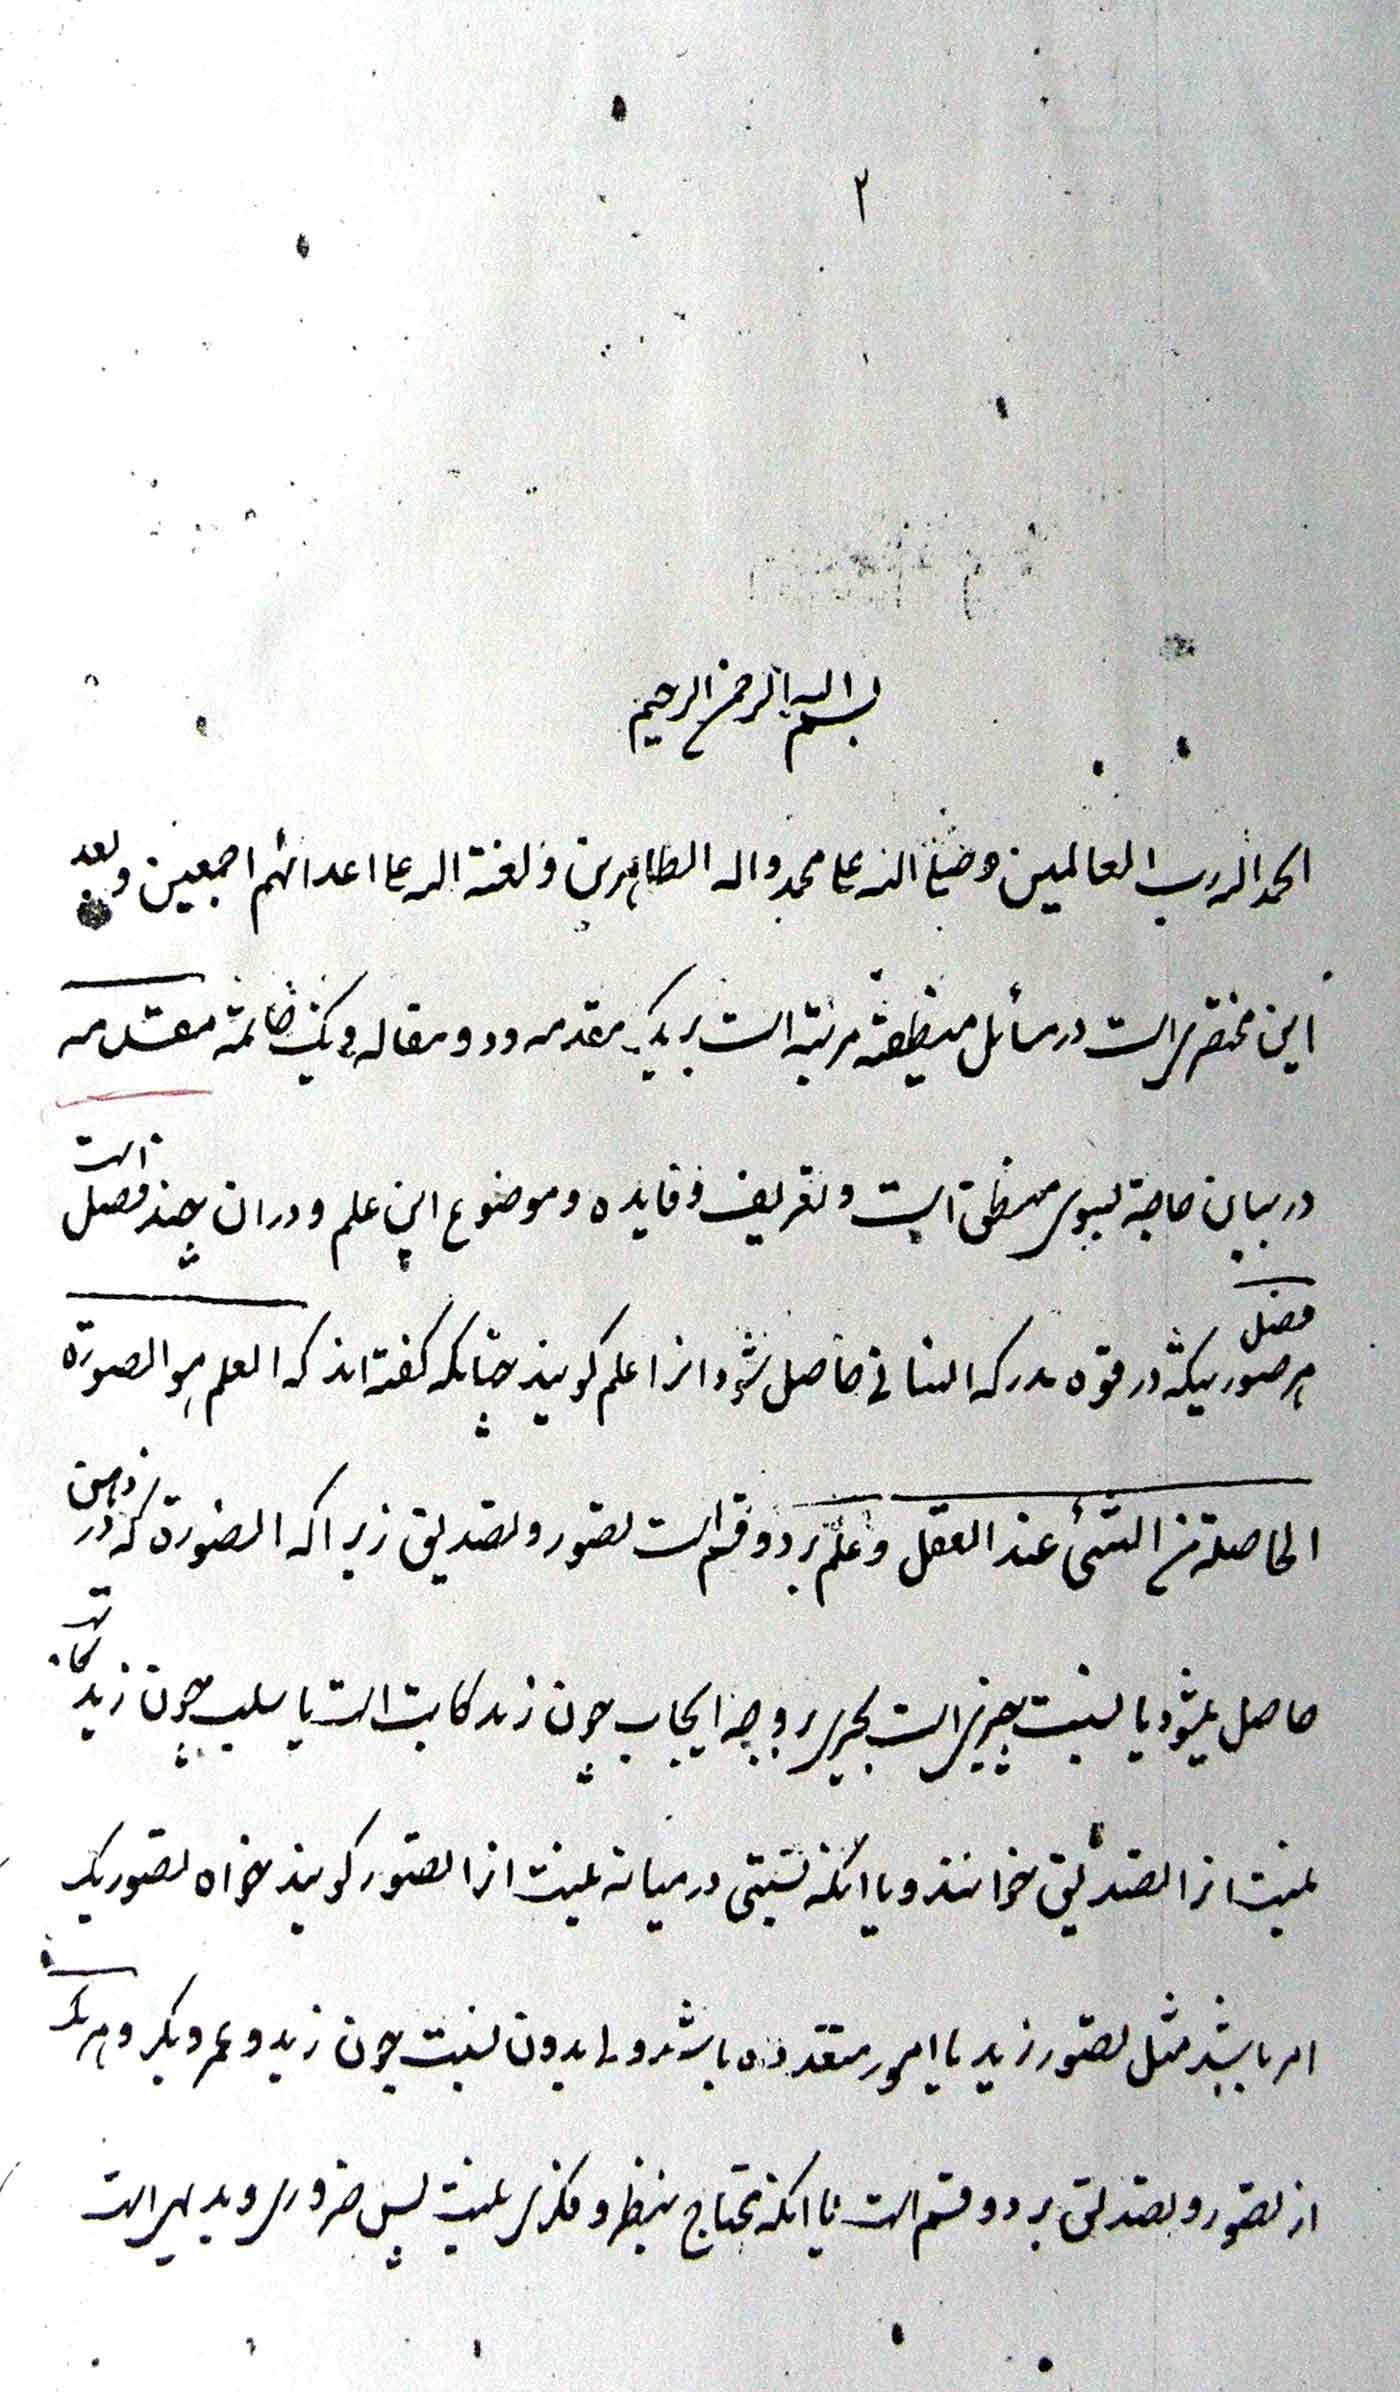 ۲
بسم الله الرحمن الرحیم
الحمد لله رب العالمین و صلی الله علی محمد و اله الطاهرین و لعنة الله علی اعدائهم اجمعین و بعد
این مختصریست در مسائل منطقیة مرتبة است بر یک مقدمه و دو مقاله و یک خاتمة مقدمه
در بیان حاجة بسوی منطق است و تعریف و فایده و موضوع این علم و در ان چند فصل است
فصل
هر صورتیکه در قوه مدرکه انسانی حاصل شود انرا علم گویند چنانکه گفته اند که العلم هو الصورة
الحاصلة من الشئ عند العقل و علم بر دو قسم است تصور و تصدیق زیرا که الصورة که در ذهن
حاصل میشود یا نسبت چیزیست بچیزی بر وجه ایجاب چون زید کاتب است یا سلب چون زید کاتب
نیست انرا تصدیق خوانند و یا انکه نسبتی در میانه نیست انرا تصور گویند خواه تصور یک
امر باشد مثل تصور زید یا امور متعدده باشد و بدون نسبت چون زید و عمر و بکر و هر یک
از تصور و تصدیق بر دو قسم است یا انکه محتاج بنظر و فکری نیست پس ضروری و بدیهی است